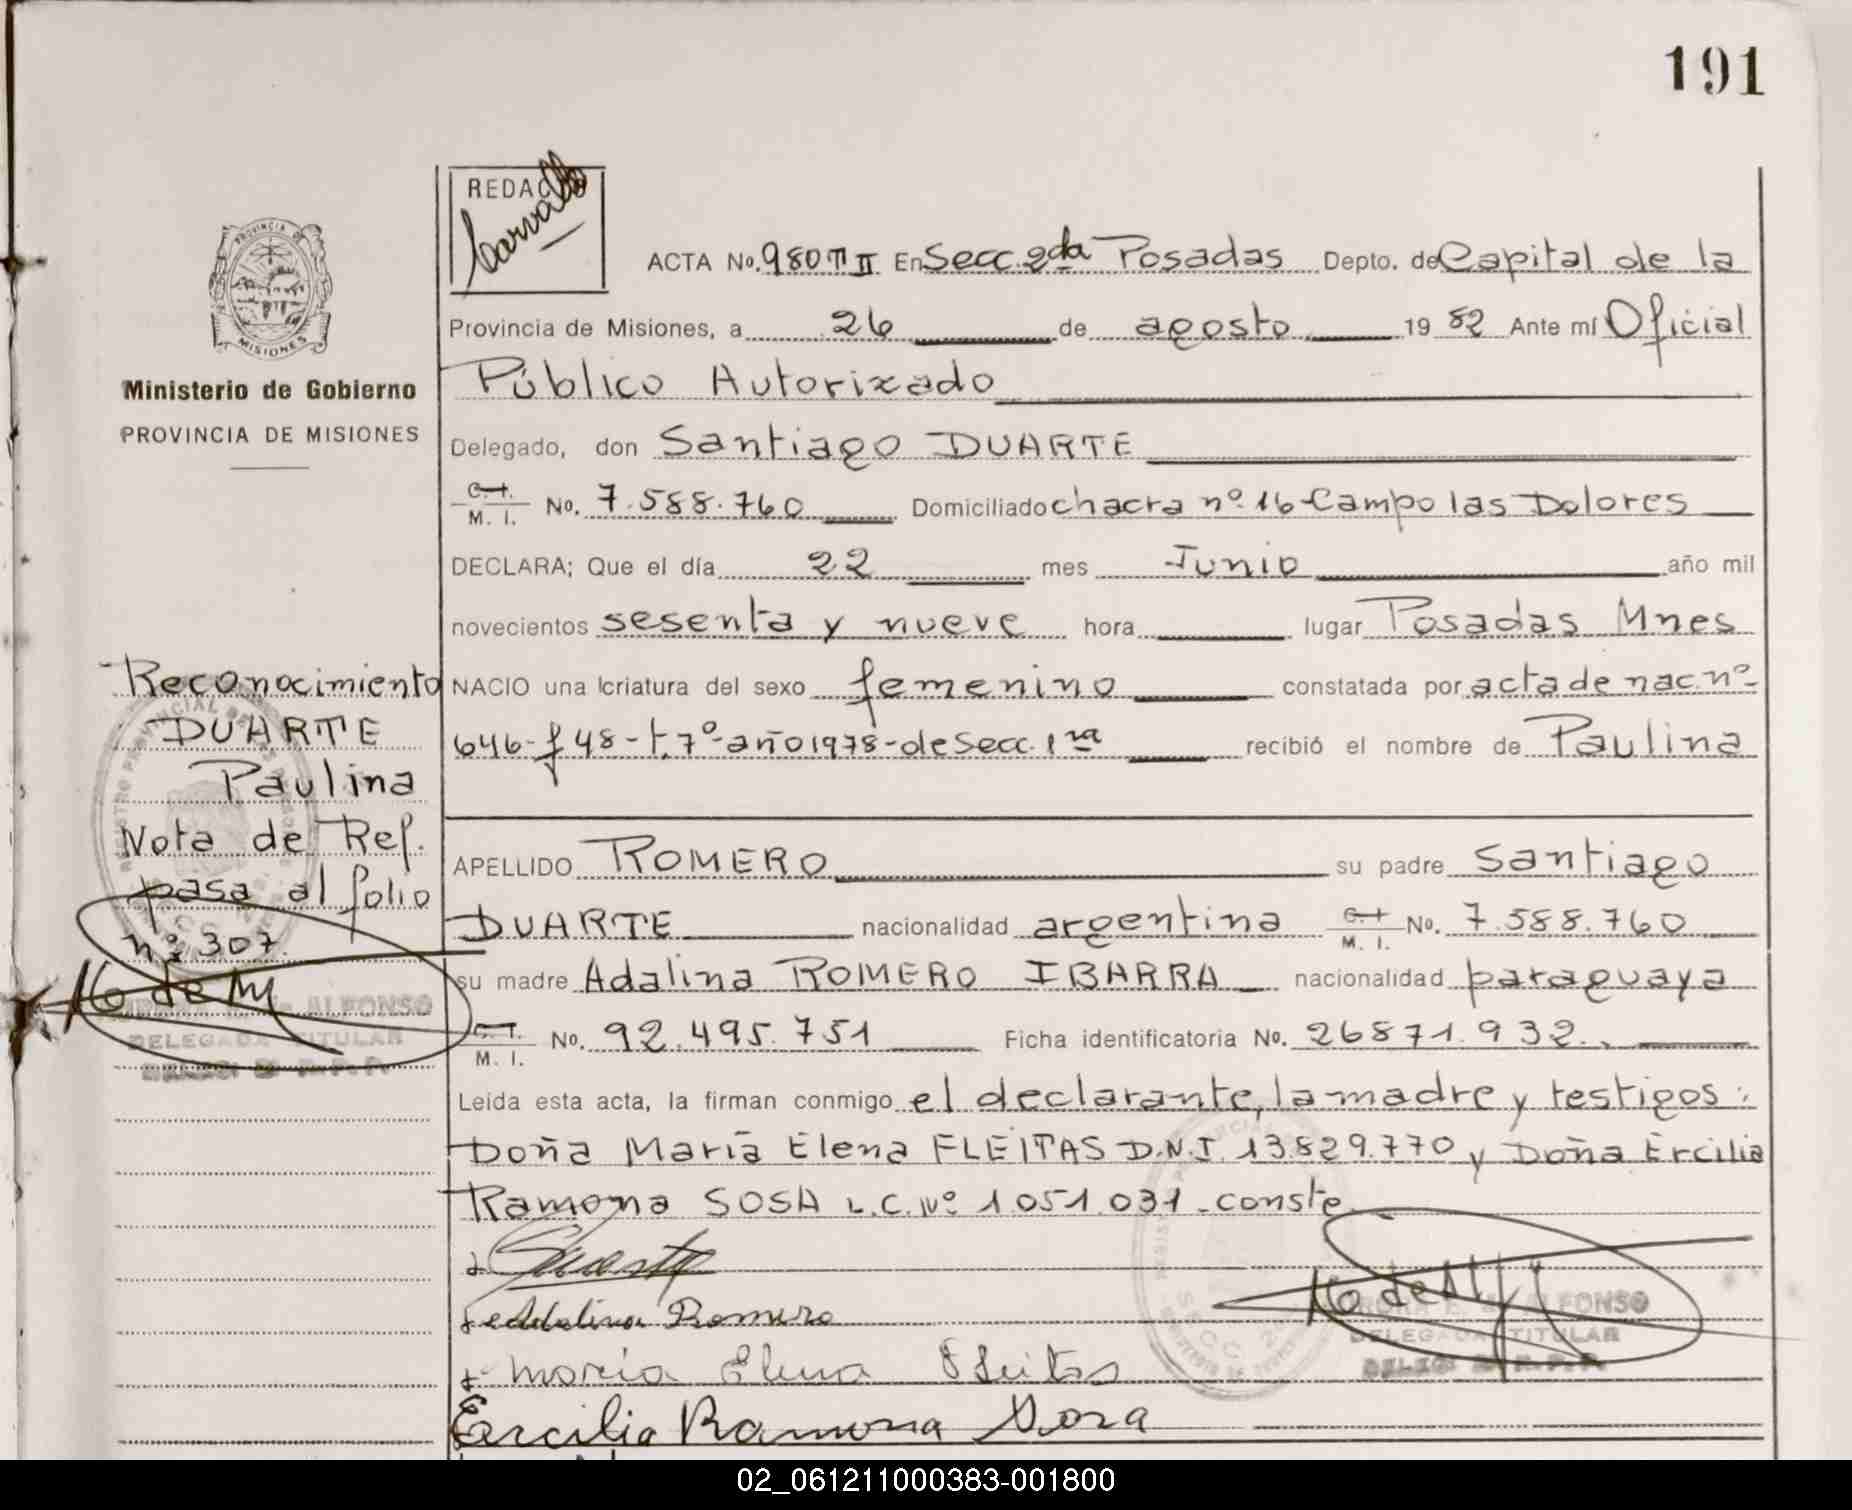 191
REDAC
Carvallo
ACTA No. 980 T II En Secc. 2da Posadas Depto. de Capital de la
Provincia de Misiones, a 26 de agosto 19 82 Ante mí Oficial
Público Autorizado
Delegado, don Santiago DUARTE
C. I. M. I. No. 7.588.760 Domiciliado chacra nº 16 - Campo las Dolores
DECLARA; Que el día 22 mes Junio año mil
novecientos sesenta y nueve hora lugar Posadas Mnes
NACIO una criatura del sexo femenino constatada por acta de nac. nº
646 - f 48 - t. 7º - año 1978 - de Secc. 1ra recibió el nombre de Paulina
APELLIDO ROMERO su padre Santiago
DUARTE nacionalidad argentina C. I. M. I. No. 7.588.760
su madre Adalina ROMERO IBARRA nacionalidad paraguaya
C. I. M. I. No. 92.495.751 Ficha identificatoria No. 26871.932.
Leída esta acta, la firman conmigo el declarante, la madre y testigos:
Doña María Elena FLEITAS D.N.I. 13.829.770 y Doña Ercilia
Ramona SOSA L.C. Nº 1.051.031 - conste
Adalina Romero
María Elena Fleitas
Ercilia Ramona Sosa
ALFONSO
DELEGADA TITULAR
PROVINCIA DE
MISIONES
Ministerio de Gobierno
PROVINCIA DE MISIONES
Reconocimiento
DUARTE
Paulina
Nota de Ref.
pasa al folio
nº 307.
ALFONSO
DELEGADA TITULAR
02_061211000383-001800